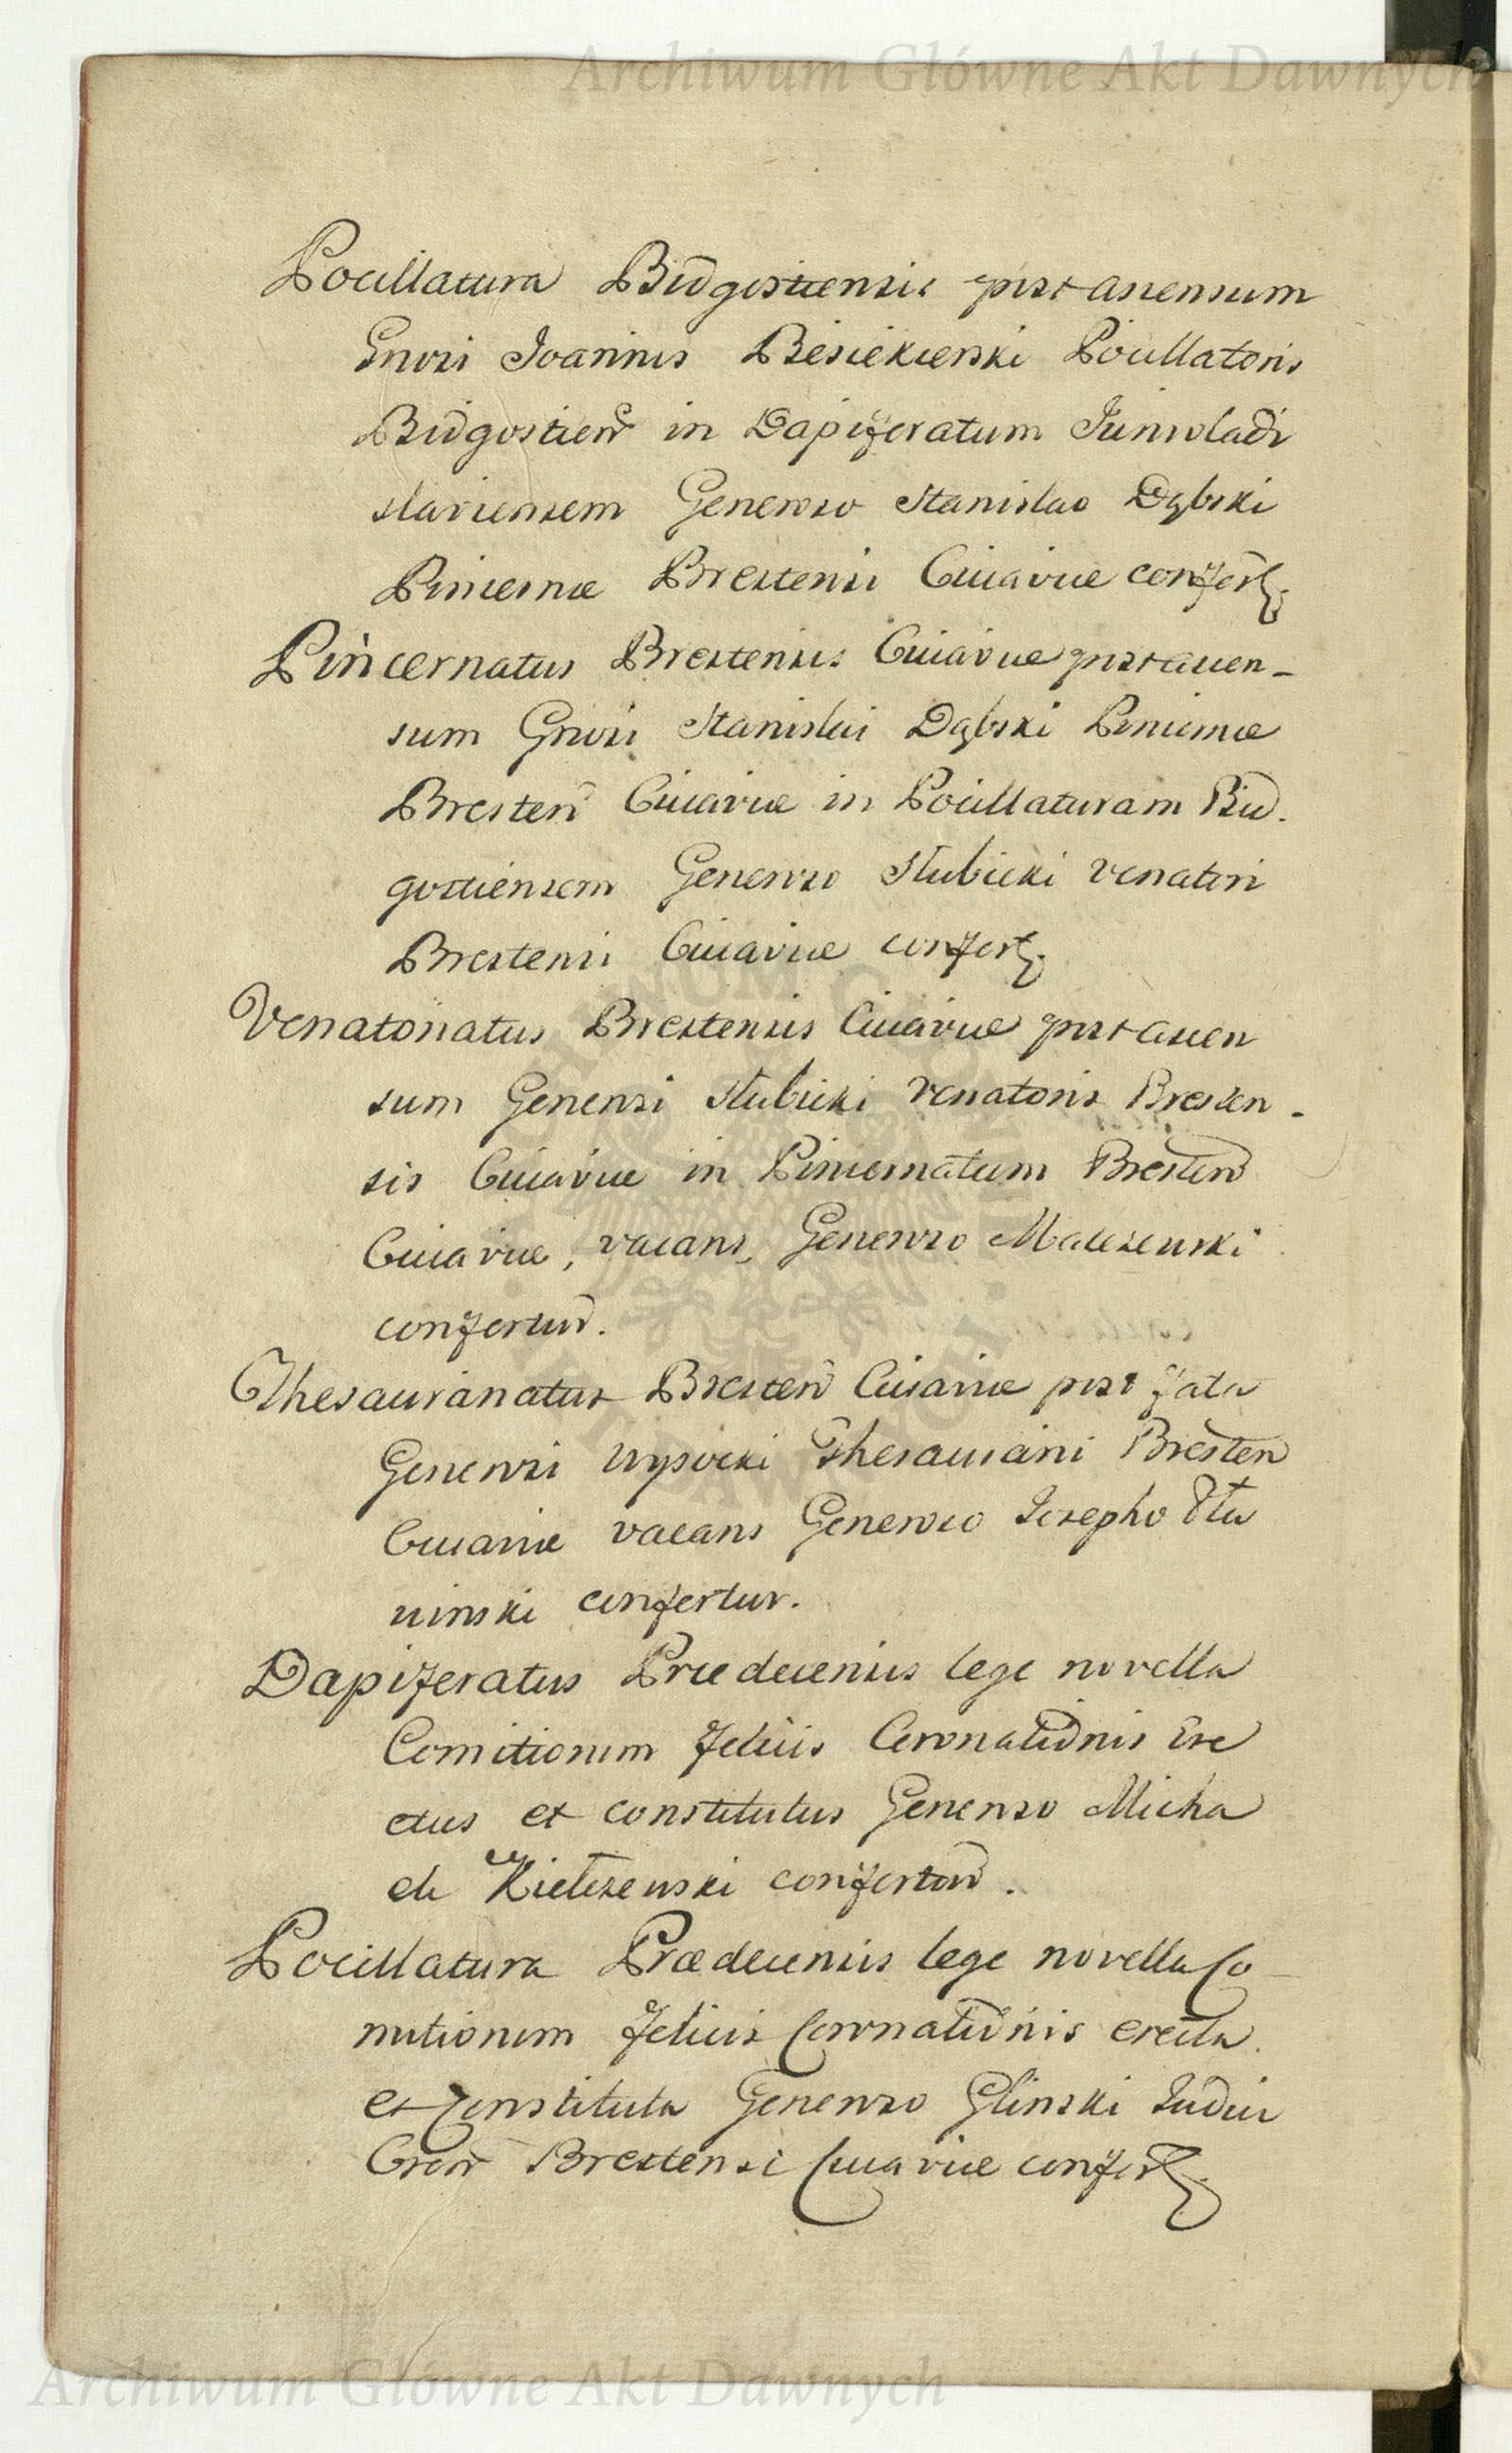 Archiwum Główne Akt Dawnych
Pocillatura Bidgostiensis post ascensum
Gnrosi Joannis Biesiekierski Pocillatoris
Bidgostien in Dapiferatum Junivladi
slaviensem Generoso Stanislao Dąbski
Pincernæ Brestensi Cuiaviæ confert
Pincernatus Brestensis Cuiaviæ post ascen-
sum Gnrosi Stanislai Dąbski Pincernæ
Bresten Cuiaviæ in Pocillaturam Bid.
gostiensem Generoso Słubicki venatori
Brestensi Cuiaviæ confert
Venatoriatus Brestensis Cuiaviæ post ascen
sum Generosi Słubicki Venatoris Bresten-
sis Cuiaviæ in Pincernatum Bresten
Cuiaviæ, vacans, Generoso
confertur.
Thesaurariatus Bresten Cuiaviæ post fata
Generosi Wysocki Thesaurarii Bresten
Cuiaviæ vacans Generoso Josepho
confertur.
Dapiferatus Prædecensis lege novella
Comitiorum felicis Coronationis ere
ctus et constitutus Generoso Micha
eli confertur.
Pocillatura Prædecensis lege novella Co
mitiorum felicis Coronationis erecta
et constituta Generoso Glinski Judici
Bresstensi Cuiaviæ confert
Archiwum Główne Akt Dawnych